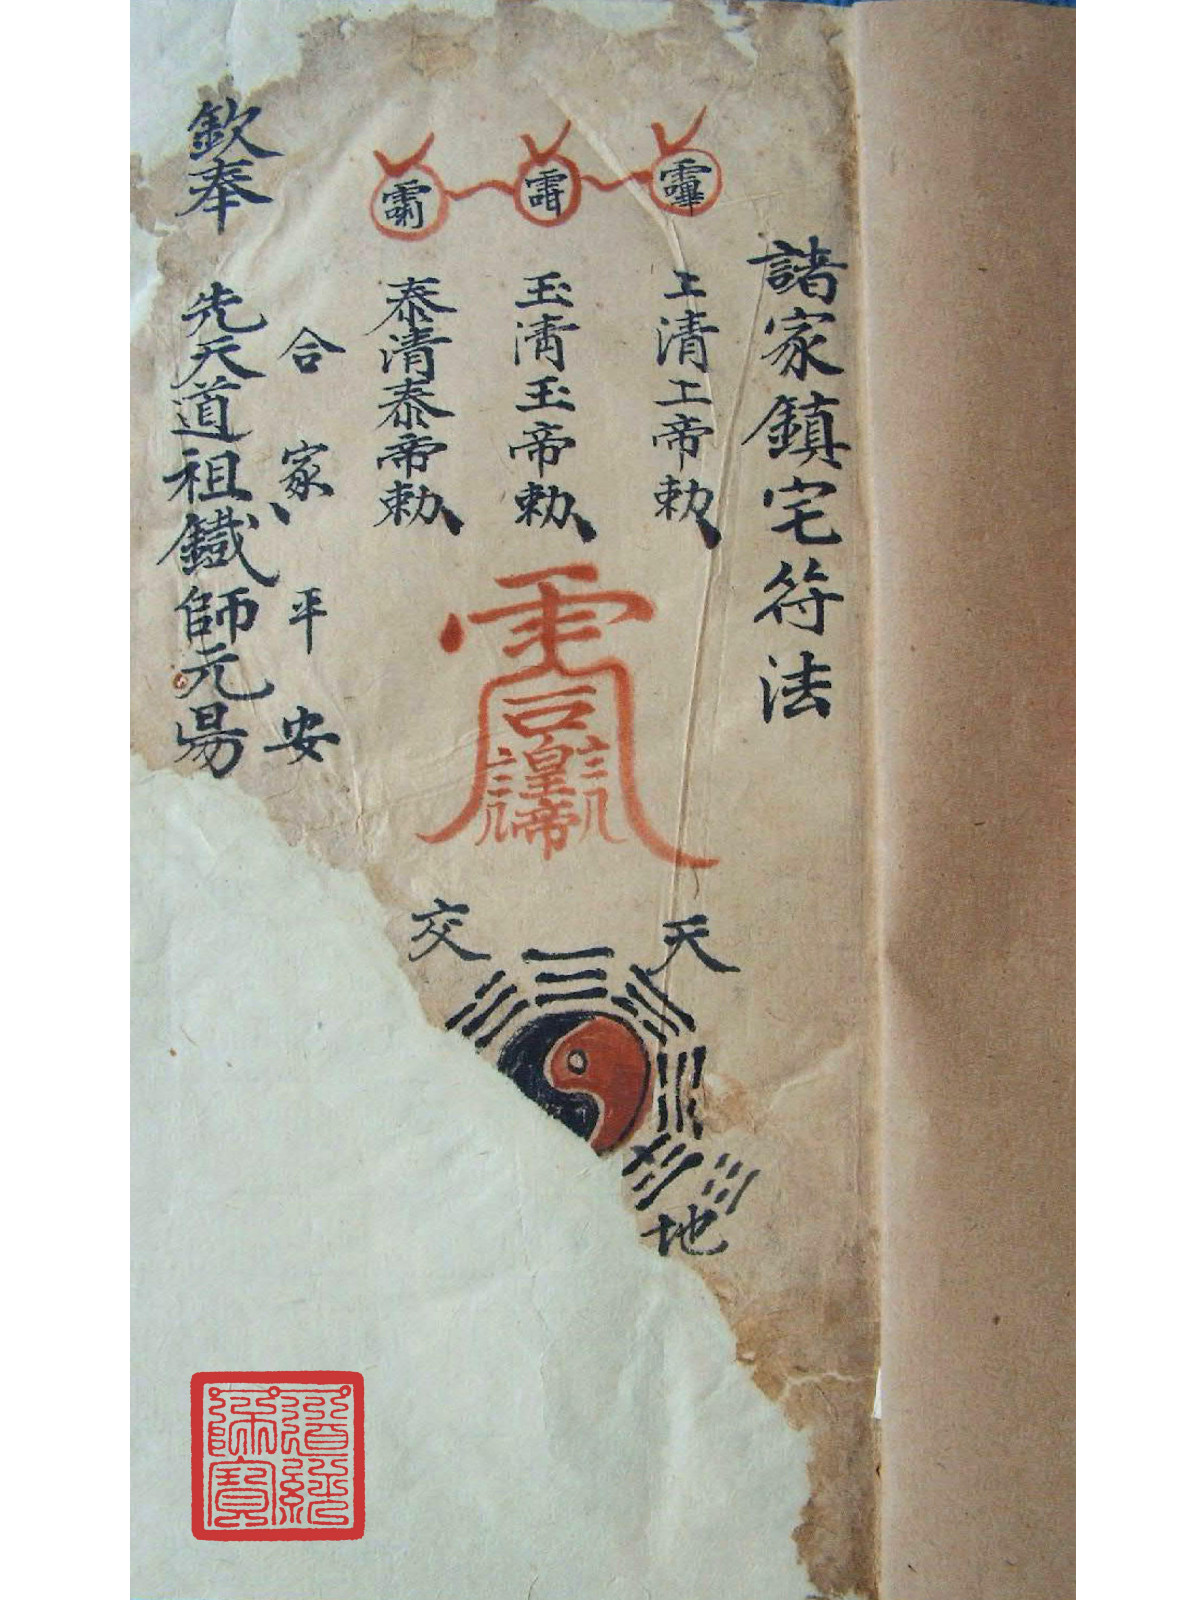 諸家鎮宅符法
工清工帝勅
玉清玉帝勅
泰清泰帝勅
皇帝
合家平安
欽奉先天道祖鐵師元昜
天
交
地
道經師寶